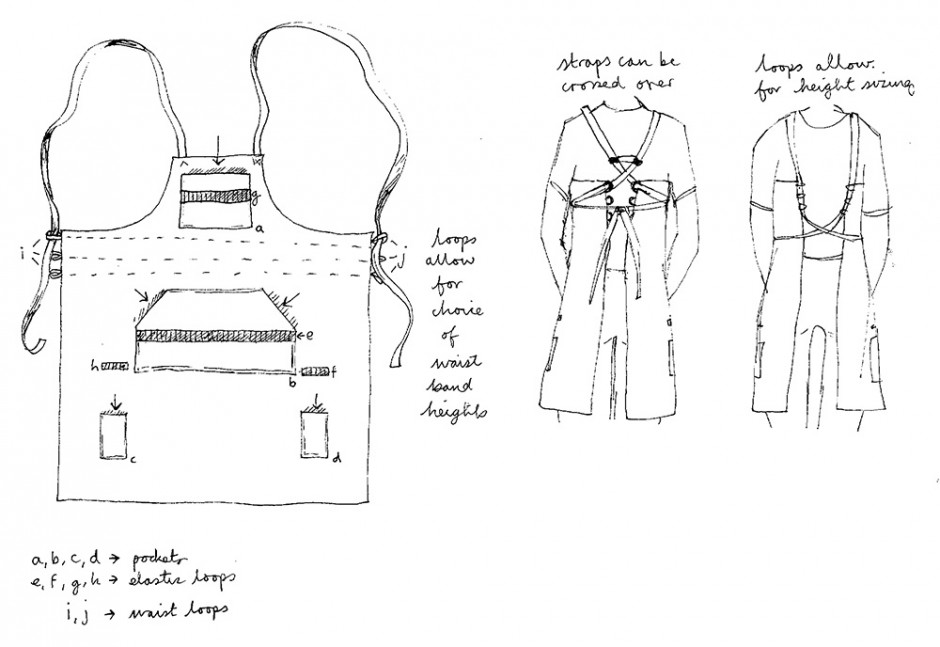 straps can be
crossed over
loops allow
for height sizing
g
a
i
j
loops
allow
for
choice
of
waist
band
heights
e
h
b
f
c
d
a, b, c, d → pockets
e, f, g, h → elastic loops
i, j → waist loops